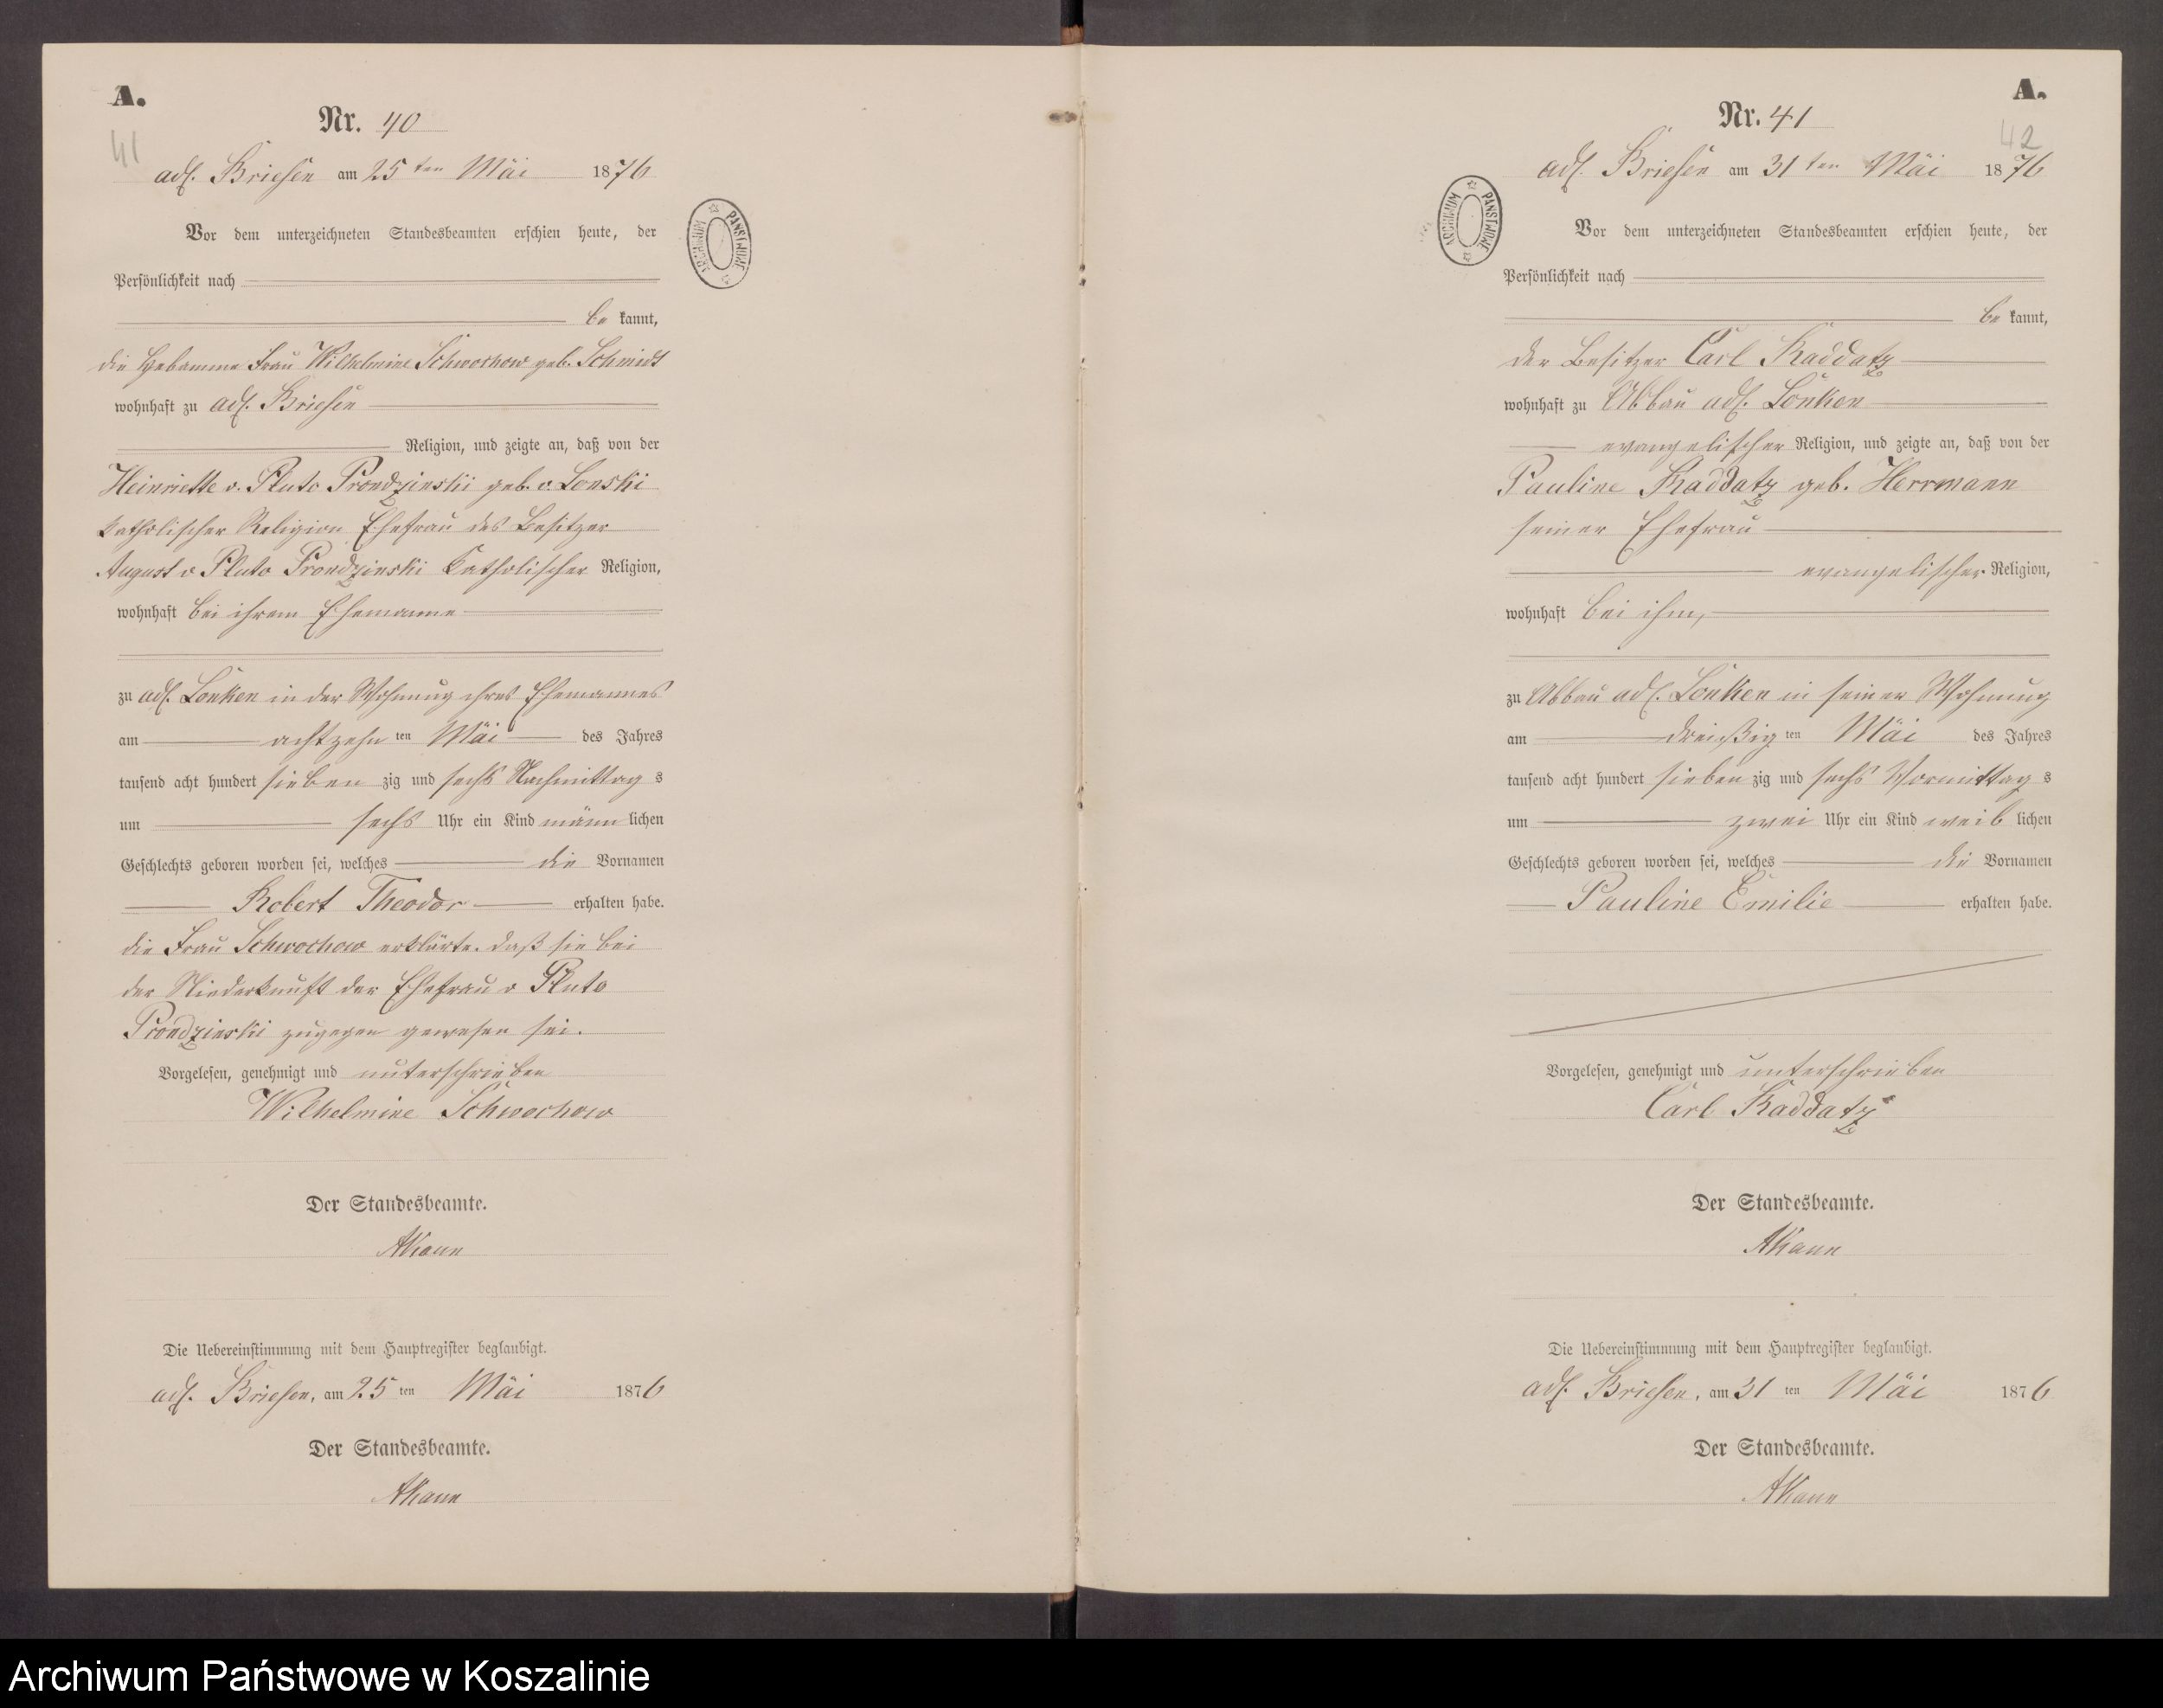 A.
Nr. 40
41
adl. Briesen am 25 ten Mai 1876
Vor dem unterzeichneten Standesbeamten erschien heute, der
Persönlichkeit nach
be kannt,
die Hebamme Frau Wilhelmine Schwochow geb. Schmidt
wohnhaft zu adl. Briesen
Religion, und zeigte an, daß von der
Heinriette v. Pluto Prondzinski geb. v. Lonski
katholischer Religion Ehefrau des Besitzer
August v Pluto Prondzinski katholischer Religion,
wohnhaft bei ihrem Ehemanne
zu adl. Lonken in der Wohnung ihres Ehemannes
am achtzehn ten Mai des Jahres
tausend acht hundert sieben zig und sechs Nachmittag s
um sechs Uhr ein Kind männ lichen
Geschlechts geboren worden sei, welches die Vornamen
Robert Theodor erhalten habe.
die Frau Schwochow erklärte, daß sie bei
der Niederkunft der Ehefrau v Pluto
Prondzinski zugegen gewesen sei.
Vorgelesen, genehmigt und unterschrieben
Wilhelmine Schwochow
Der Standesbeamte.
Die Uebereinstimmung mit dem Hauptregister beglaubigt.
adl. Briesen, am 25 ten Mai 1876
Der Standesbeamte.
ARCHIWUM PAŃSTWOWE
A.
Nr. 41
42
adl. Briesen am 31 ten Mai 1876
Vor dem unterzeichneten Standesbeamten erschien heute, der
Persönlichkeit nach
be kannt,
der Besitzer Carl Raddatz
wohnhaft zu Abbau adl. Lonken
evangelischer Religion, und zeigte an, daß von der
Pauline Raddatz geb. Herrmann
seiner Ehefrau
evangelischer Religion,
wohnhaft bei ihm,
zu Abbau adl. Lonken in seiner Wohnung
am dreißig ten Mai des Jahres
tausend acht hundert sieben zig und sechs Vormittag s
um zwei Uhr ein Kind weib lichen
Geschlechts geboren worden sei, welches die Vornamen
Pauline Emilie erhalten habe.
Vorgelesen, genehmigt und unterschrieben
Carl Raddatz
Der Standesbeamte.
Die Uebereinstimmung mit dem Hauptregister beglaubigt.
adl. Briesen, am 31 ten Mai 1876
Der Standesbeamte.
ARCHIWUM PAŃSTWOWE
Archiwum Państwowe w Koszalinie